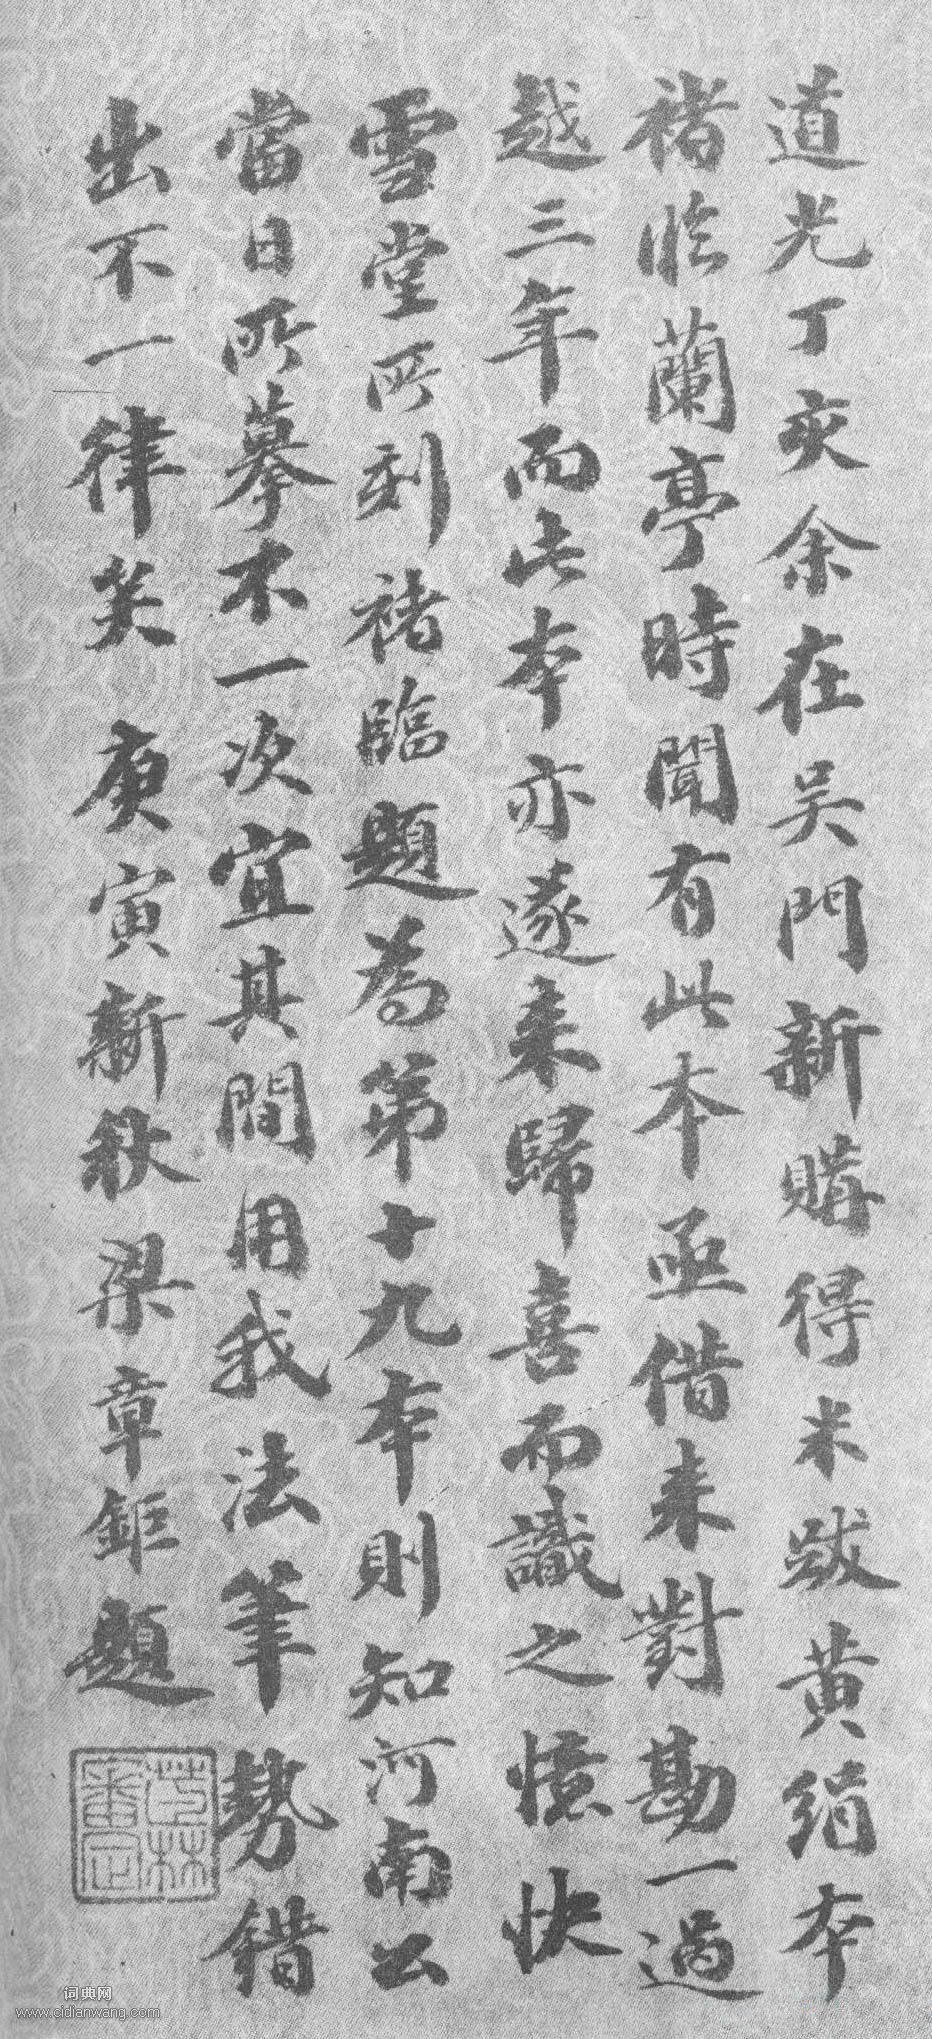 道光丁亥余在吴門新購得米跋黄絹本
褚临蘭亭時聞有此本亟借来對勘一過
越三年而此本亦遂来歸喜而識之憶快
雪堂所刻褚臨題為第十九本則知河南公
當日所摹不一次宜其間用我法筆勢錯
出不一律矣庚寅新秋梁章鉅題
茝林審定
词典网
www.cidianwang.com